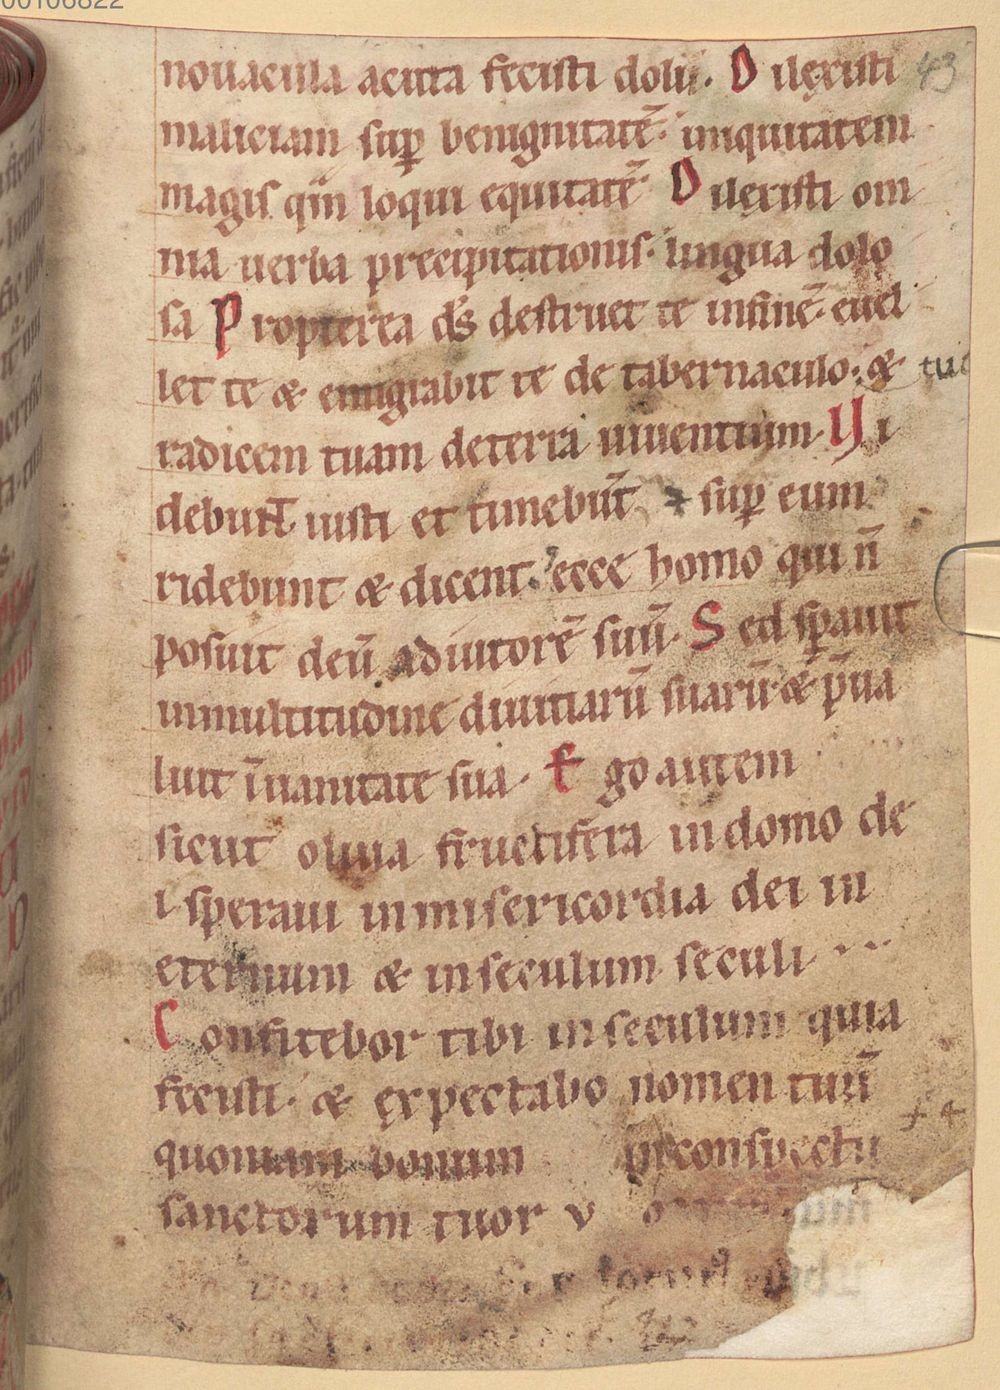 00106822
43
nouacula acuta fecisti dolū. Dilexisti
maliciam sup̄ benignitatē. iniquitatem
magis qm̄ loqui equitatē Dilexisti om
nia uerba precipitationis. lingua dolo
sa Propterea ds̄ destruet te infinē. euel
let te & emigrabit te de tabernaculo. & tuo
radicem tuam deterra uiuentium. Vi
debunt iusti et timebūt & sup̄ eum
ridebunt & dicent. ecce homo qui n̄
posuit deū adiutorē suū. Sed sp̄auit
inmultitudine diuitiarū suarū. & p̄ua
luit īuanitate sua. Ego autem
sicut oliua fructifera in domo de
i speraui in misericordia dei in
eternum & in seculum seculi
Confitebor tibi in seculum quia
fecisti. & expectabo nomen tuū
quoniam bonum inconspectu
sanctorum tuor v